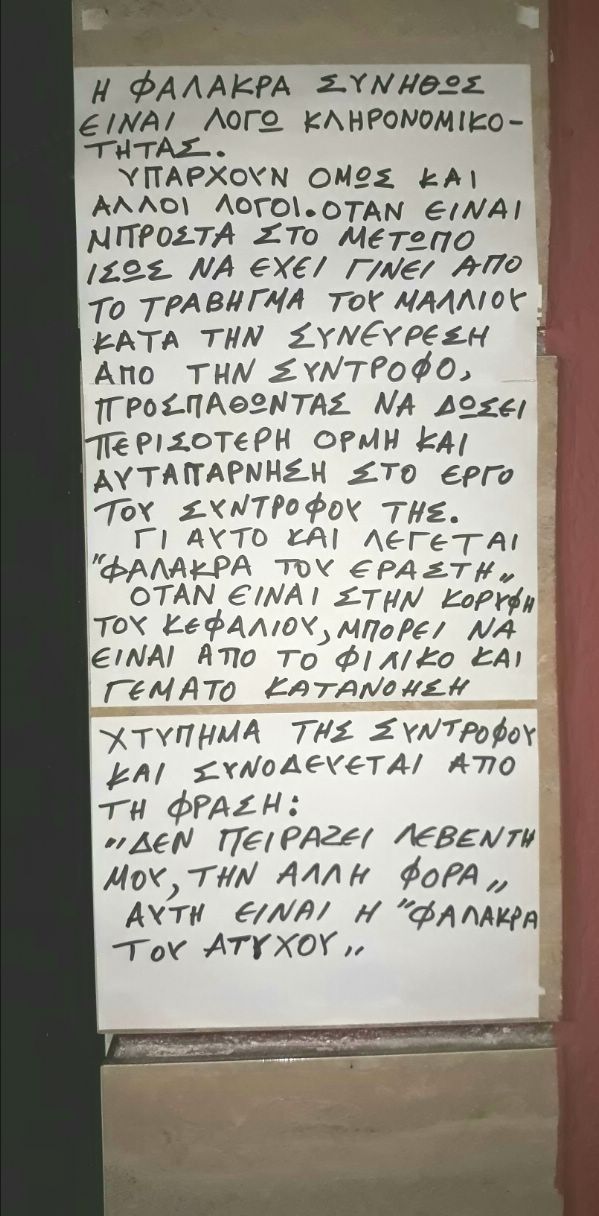 Η ΦΑΛΑΚΡΑ ΣΥΝΗΘΩΣ
ΕΙΝΑΙ ΛΟΓΩ ΚΛΗΡΟΝΟΜΙΚΟ-
ΤΗΤΑΣ.
ΥΠΑΡΧΟΥΝ ΟΜΩΣ ΚΑΙ
ΑΛΛΟΙ ΛΟΓΟΙ. ΟΤΑΝ ΕΙΝΑΙ
ΜΠΡΟΣΤΑ ΣΤΟ ΜΕΤΩΠΟ
ΙΣΩΣ ΝΑ ΕΧΕΙ ΓΙΝΕΙ ΑΠΟ
ΤΟ ΤΡΑΒΗΓΜΑ ΤΟΥ ΜΑΛΛΙΟΥ
ΚΑΤΑ ΤΗΝ ΣΥΝΕΥΡΕΣΗ
ΑΠΟ ΤΗΝ ΣΥΝΤΡΟΦΟ,
ΠΡΟΣΠΑΘΩΝΤΑΣ ΝΑ ΔΩΣΕΙ
ΠΕΡΙΣΟΤΕΡΗ ΟΡΜΗ ΚΑΙ
ΑΥΤΑΠΑΡΝΗΣΗ ΣΤΟ ΕΡΓΟ
ΤΟΥ ΣΥΝΤΡΟΦΟΥ ΤΗΣ.
ΓΙ ΑΥΤΟ ΚΑΙ ΛΕΓΕΤΑΙ
"ΦΑΛΑΚΡΑ ΤΟΥ ΕΡΑΣΤΗ„
ΟΤΑΝ ΕΙΝΑΙ ΣΤΗΝ ΚΟΡΥΦΗ
ΤΟΥ ΚΕΦΑΛΙΟΥ, ΜΠΟΡΕΙ ΝΑ
ΕΙΝΑΙ ΑΠΟ ΤΟ ΦΙΛΙΚΟ ΚΑΙ
ΓΕΜΑΤΟ ΚΑΤΑΝΟΗΣΗ
ΧΤΥΠΗΜΑ ΤΗΣ ΣΥΝΤΡΟΦΟΥ
ΚΑΙ ΣΥΝΟΔΕΥΕΤΑΙ ΑΠΟ
ΤΗ ΦΡΑΣΗ:
„ΔΕΝ ΠΕΙΡΑΖΕΙ ΛΕΒΕΝΤΗ
ΜΟΥ, ΤΗΝ ΑΛΛΗ ΦΟΡΑ„
ΑΥΤΗ ΕΙΝΑΙ Η "ΦΑΛΑΚΡΑ
ΤΟΥ ΑΤΥΧΟΥ„